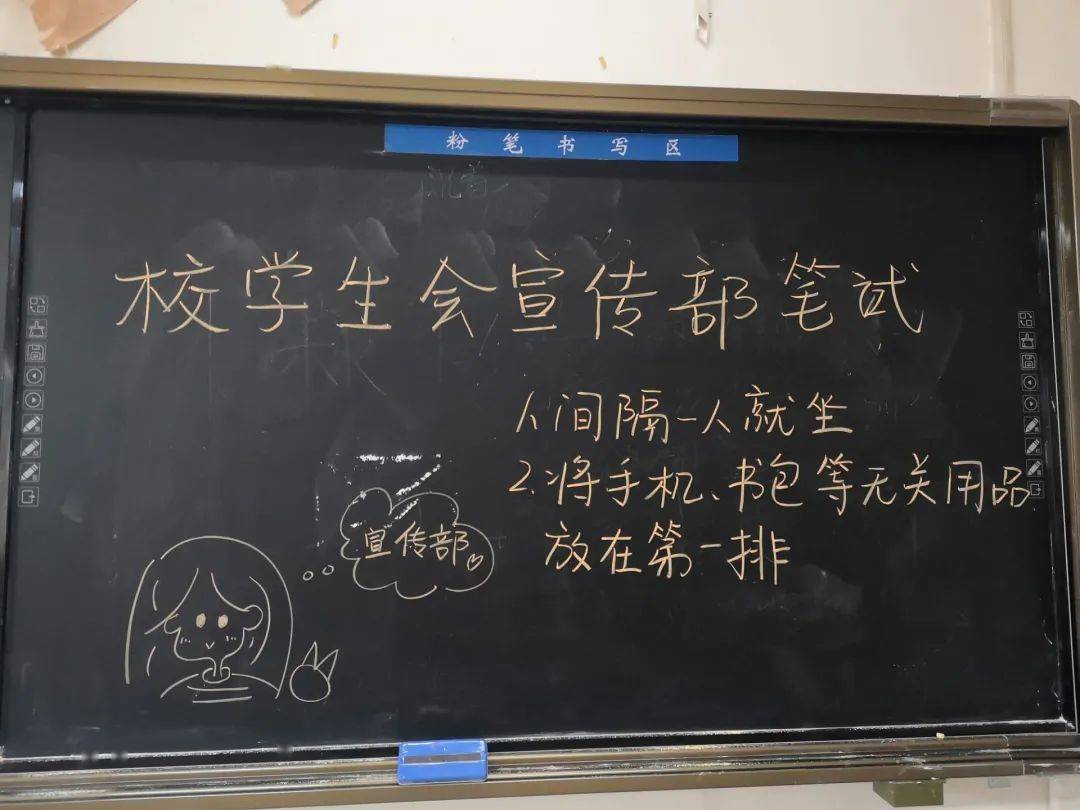 粉笔书写区
校学生会宣传部笔试
1、间隔一人就坐
2.将手机、书包等无关用品
放在第一排
宣传部